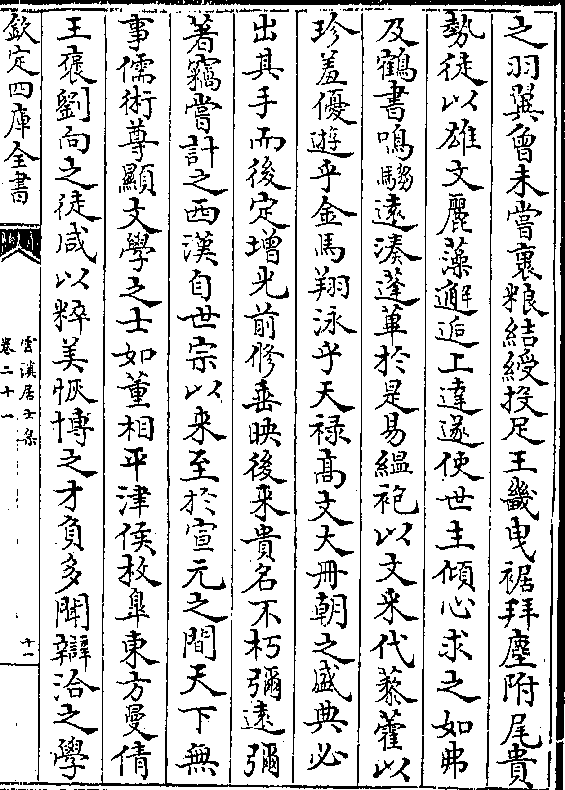 之羽翼曾未嘗裹粮結綬投足王畿曳裾拜塵附尾貴
勢徒以雄文麗藻邂逅上達遂使世主傾心求之如弗
及鶴書鳴騶遠湊蓬蓽於是易緼袍以文采代藜藿以
珍羞優遊乎金馬翔泳乎天禄高文大冊朝之盛典必
出其手而後定增光前修垂映後来貴名不朽彌遠彌
著竊嘗計之西漢自世宗以来至於宣元之間天下無
事儒術尊顯文學之士如董相平津侯枚臯東方曼倩
王襃劉向之徒咸以粹美恢博之才負多聞辯洽之學
欽定四庫全書
雲溪居士集
卷二十一
十一